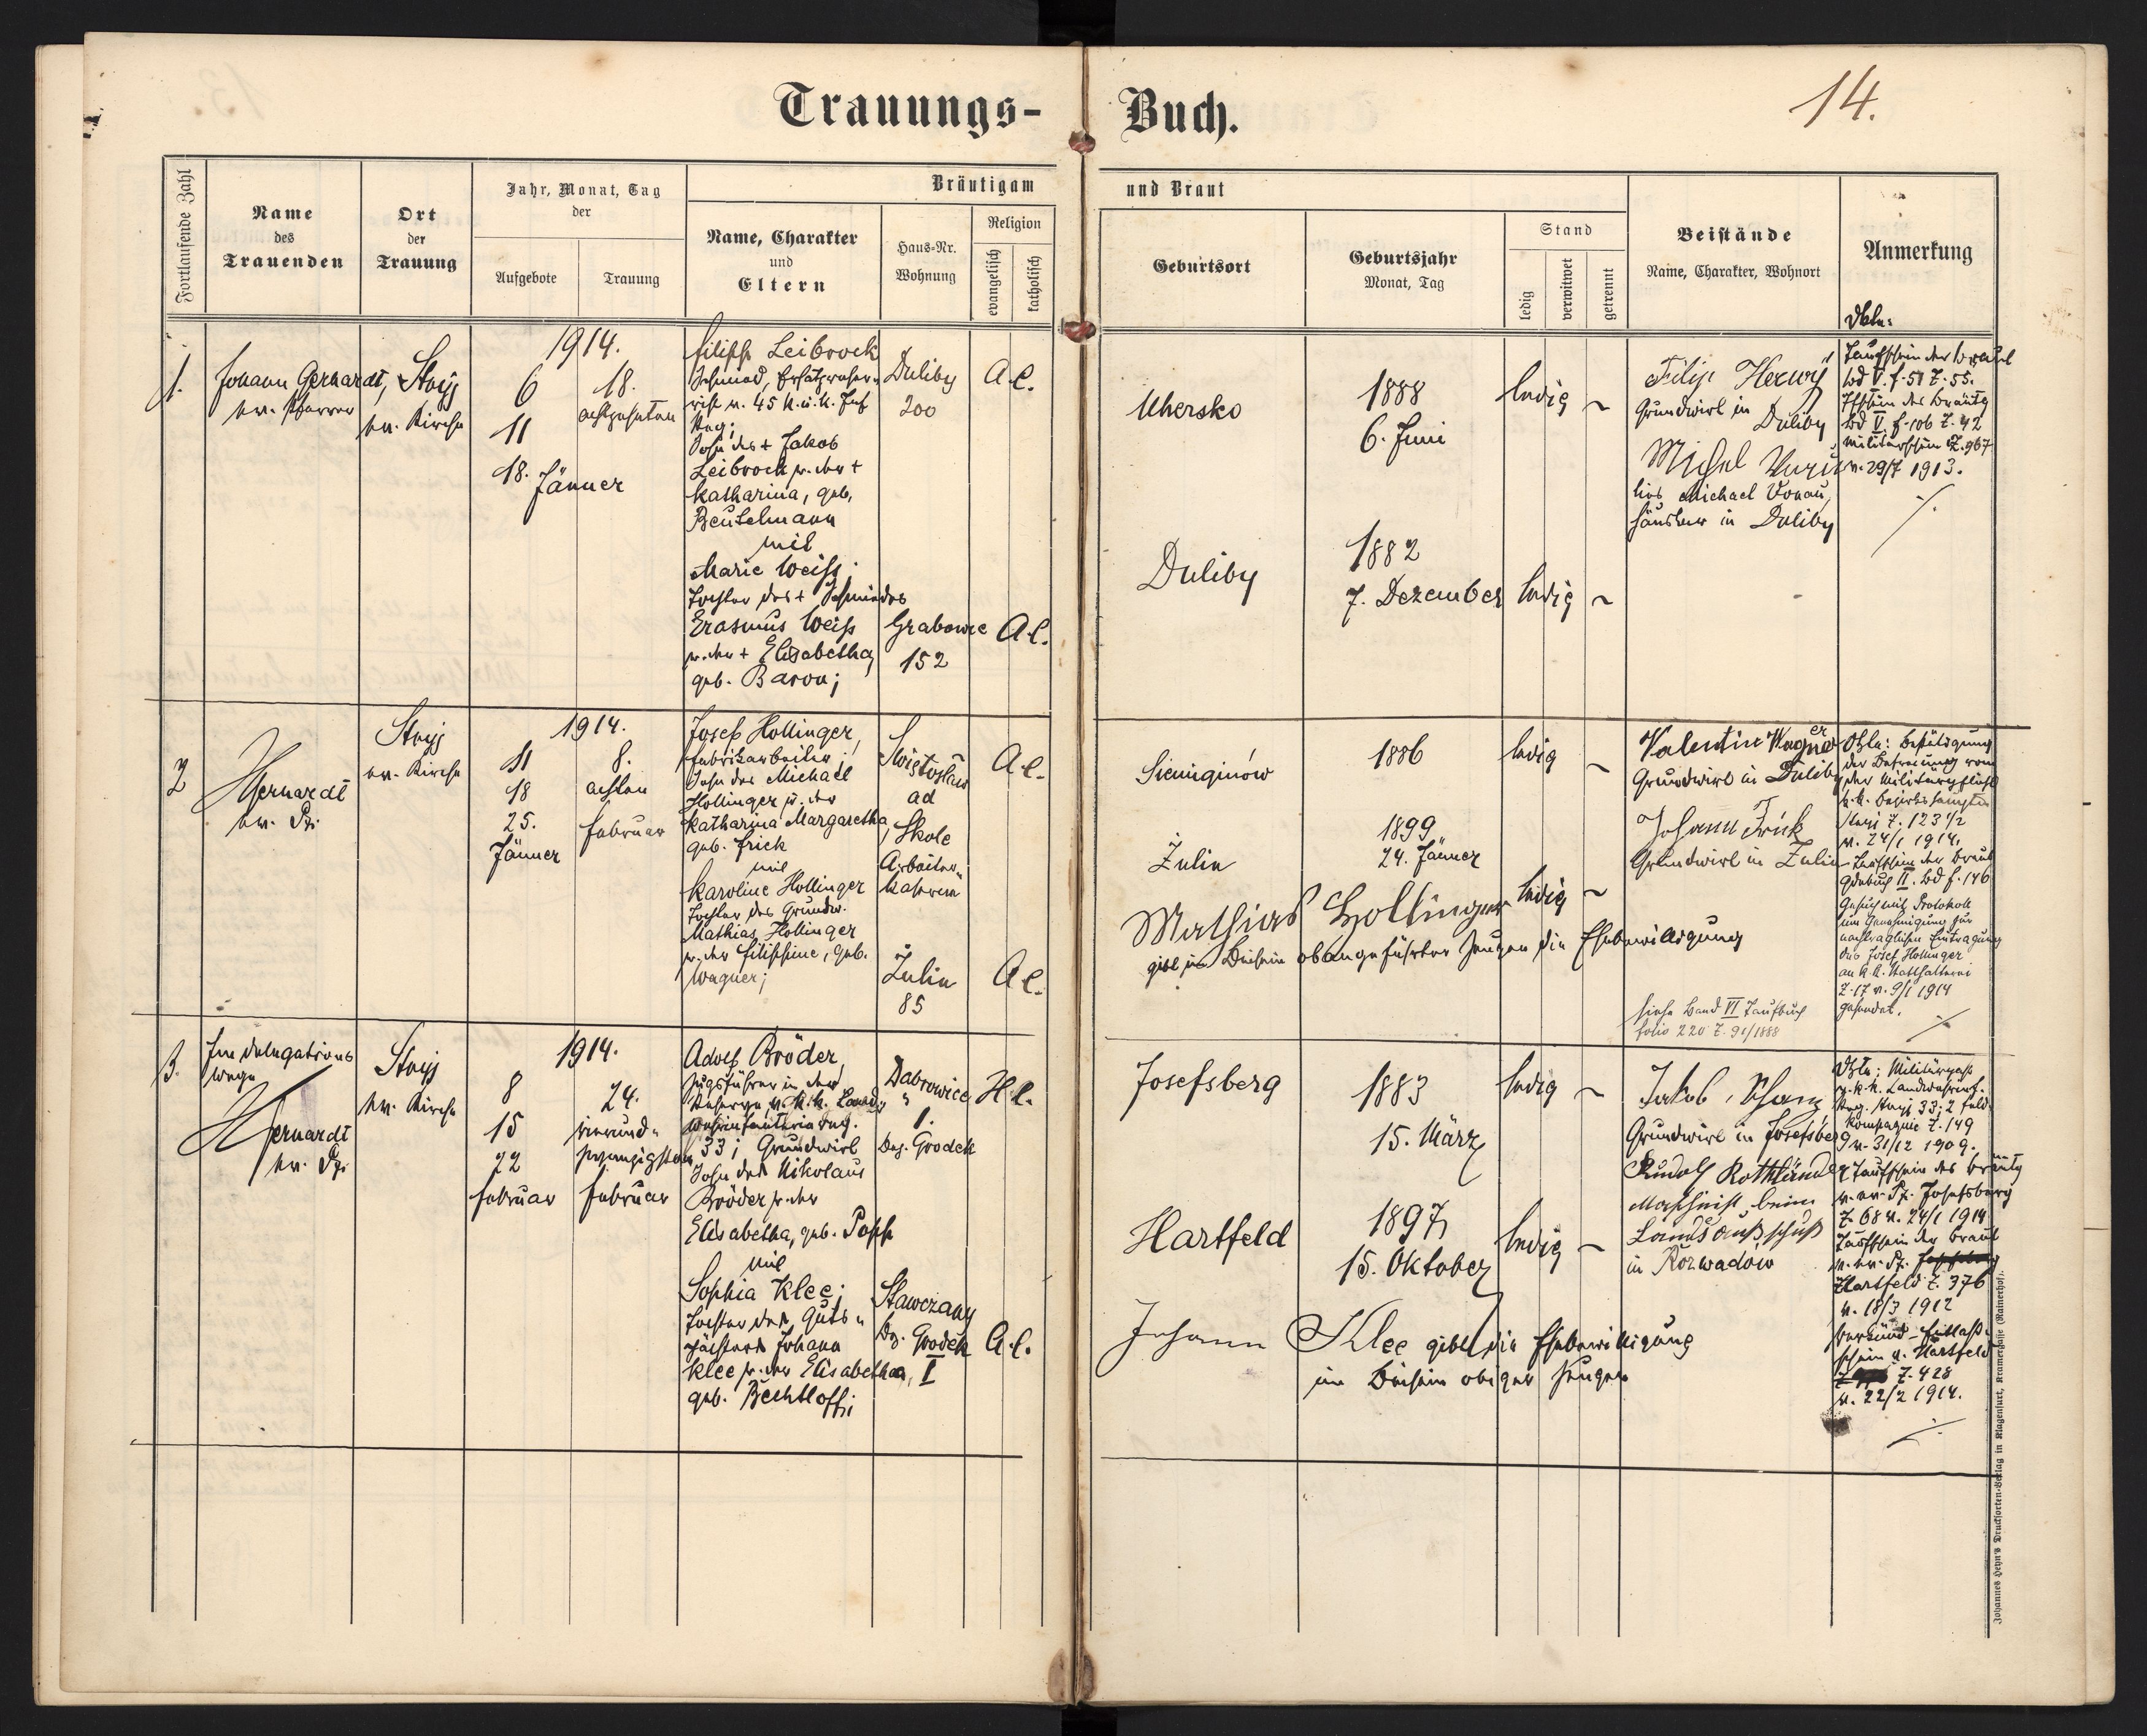 Trauungs-
Buch.
14.
Fortlaufende Zahl
Name
des
Trauenden
Ort
der
Trauung
Jahr, Monat, Tag
der
Aufgebote
Trauung
Bräutigam
Name, Charakter
und
Eltern
Haus-Nr.
Wohnung
Religion
evangelisch
katholisch
und Braut
Geburtsort
Geburtsjahr
Monat, Tag
Stand
ledig
verwitwet
getrennt
Beistände
Name, Charakter, Wohnort
Anmerkung
1.
Johann Gerhardt,
ev. Pfarrer
Stryj
ev. Kirche
1914.
6
11
18. Jänner
18.
achtzehnten
Filipp Leibrock
Schmied, Ersatzreser-
vist v. 45 k.u.k. Inf
Reg;
Sohn des + Jakob
Leibrock u. der +
Katharina, geb.
Beutelmann
mit
Marie Weiss;
Tochter des + Schmiedes
Erasmus Weiss
u. der + Elisabetha,
geb. Baron;
Duliby
200
A.C.
Grabowce
152
A.C.
Uhersko
1888
6. Juni
ledig
Duliby
1882
7. Dezember
ledig
Filip Herwy
Grundwirt in
Duliby
Michael Vonau,
Häusler in Duliby
Taufschein der Braut
Bd V. f. 51 Z. 55.
Bd V f. 106 Z. 42
Militärschein Z. 967
v. 29/7 1913.
2
Gerhardt
ev. Pf.
Stryj
ev. Kirche
1914.
11
18
25.
Jänner
8.
achten
Februar
Josef Hollinger,
Fabriksarbeiter;
Sohn des Michael
Hollinger u. der
Katharina Margaretha,
geb. Frick
mit
Karoline Hollinger
Tochter des Grundw.
Mathias Hollinger
u. der Filippine, geb.
Wagner;
ad
Skole
Arbeiter-
Kaserne
A.C.
Zulin
85
A.C.
1886
ledig
Zulin
1899
24. Jänner
ledig
Mathias Hollinger
gibt im Beisein obangeführter Zeugen die Ehebewilligung
Valentin Wagner
Grundwirt in Duliby
Johann Frick
Grundwirt in Zulin
siehe Band VI Taufbuch
folio 220 Z. 91/1888
Bestätigung
der Befreiung von
der Militärpflicht
k.k. Bezirkshauptm
Stryj Z. 123 1/2
v. 24/1 1914.
Taufschein der Braut
Gebbuch II. Bd f. 146
Gesuch mit Protokoll
um Genehmigung zur
nachträglichen Eintragung
des Josef Hollinger
an k.k. Statthalterei
Z. 17 v. 9/1 1914
gesendet.
3.
Im Delegations
wege
Gerhardt
ev. Pf.
Stryj
ev. Kirche
1914.
8
15
22
Februar
24.
vierund-
zwanzigsten
Februar
Adolf Bröder,
Zugsführer in der
Reserve v. k.k. Land-
wehrinfanterie Reg.
33; Grundwirt
Sohn des Nikolaus
Bröder u. der
Elisabetha, geb. Popp
mit
Sophia Klee;
Tochter des Guts-
pächters Johann
Klee u. der Elisabetha,
geb. Bechtloff;
Dabrowice
1.
Bez. Grodek
H.C.
Stawczany
Bz. Grodek
I
A.C.
Josefsberg
1883
15. März
ledig
Hartfeld
1897
15. Oktober
ledig
Johann Klee gibt die Ehebewilligung
im Beisein obiger Zeugen
Jakob Schanz
Grundwirt in Josefsberg
Rudolf Rothländer
Maschinist beim
Landesausschuß
in Rozwadów
Militärpass
v. k.k. Landwehrinf.
Reg. Stryj 33; 2 Feld-
kompagnie Z. 149
v. 31/12 1909.
Taufschein des Bräutig
v. ev. Pf. Josefsberg
Z. 68 v. 24/1 1914
Taufschein der Braut
v. ev. Pf.
Hartfeld Z. 376
v. 18/3 1912
Verkünd-Entlaß-
schein v. Hartfeld
Z. 428
v. 22/2 1914.
Johannes Heyn's Drucksorten-Verlag in Klagenfurt, Kramergasse (Rainerhof).